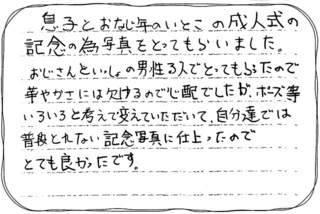 息子とおなじ年のいとこの成人式の
記念の為写真をとってもらいました。
おじさんといっしょの男性3人でとってもらったので
華やかさには欠けるので心配でしたが、ポーズ等
いろいろと考えて変えていただいて、自分達では
普段とれない記念写真に仕上ったので
とても良かったです。